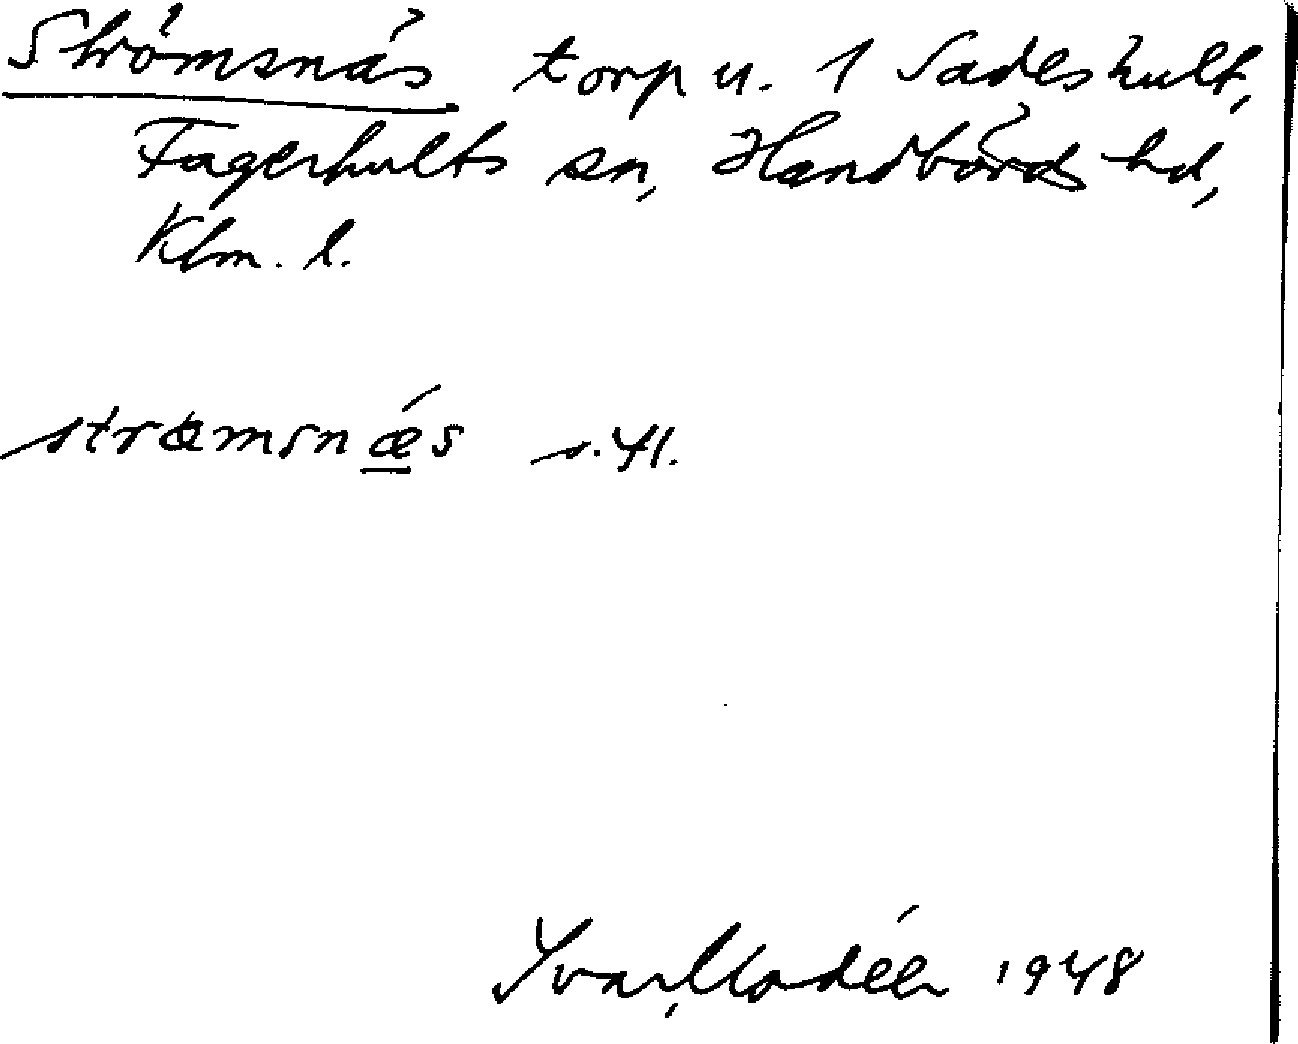 Strömsnäs torp u. 1 Sadeshult,
Fagerhults sn, Handbörds hd,
Klm. l.
strœmsnæ̲s s. 41.
Ivar Modéer 1948